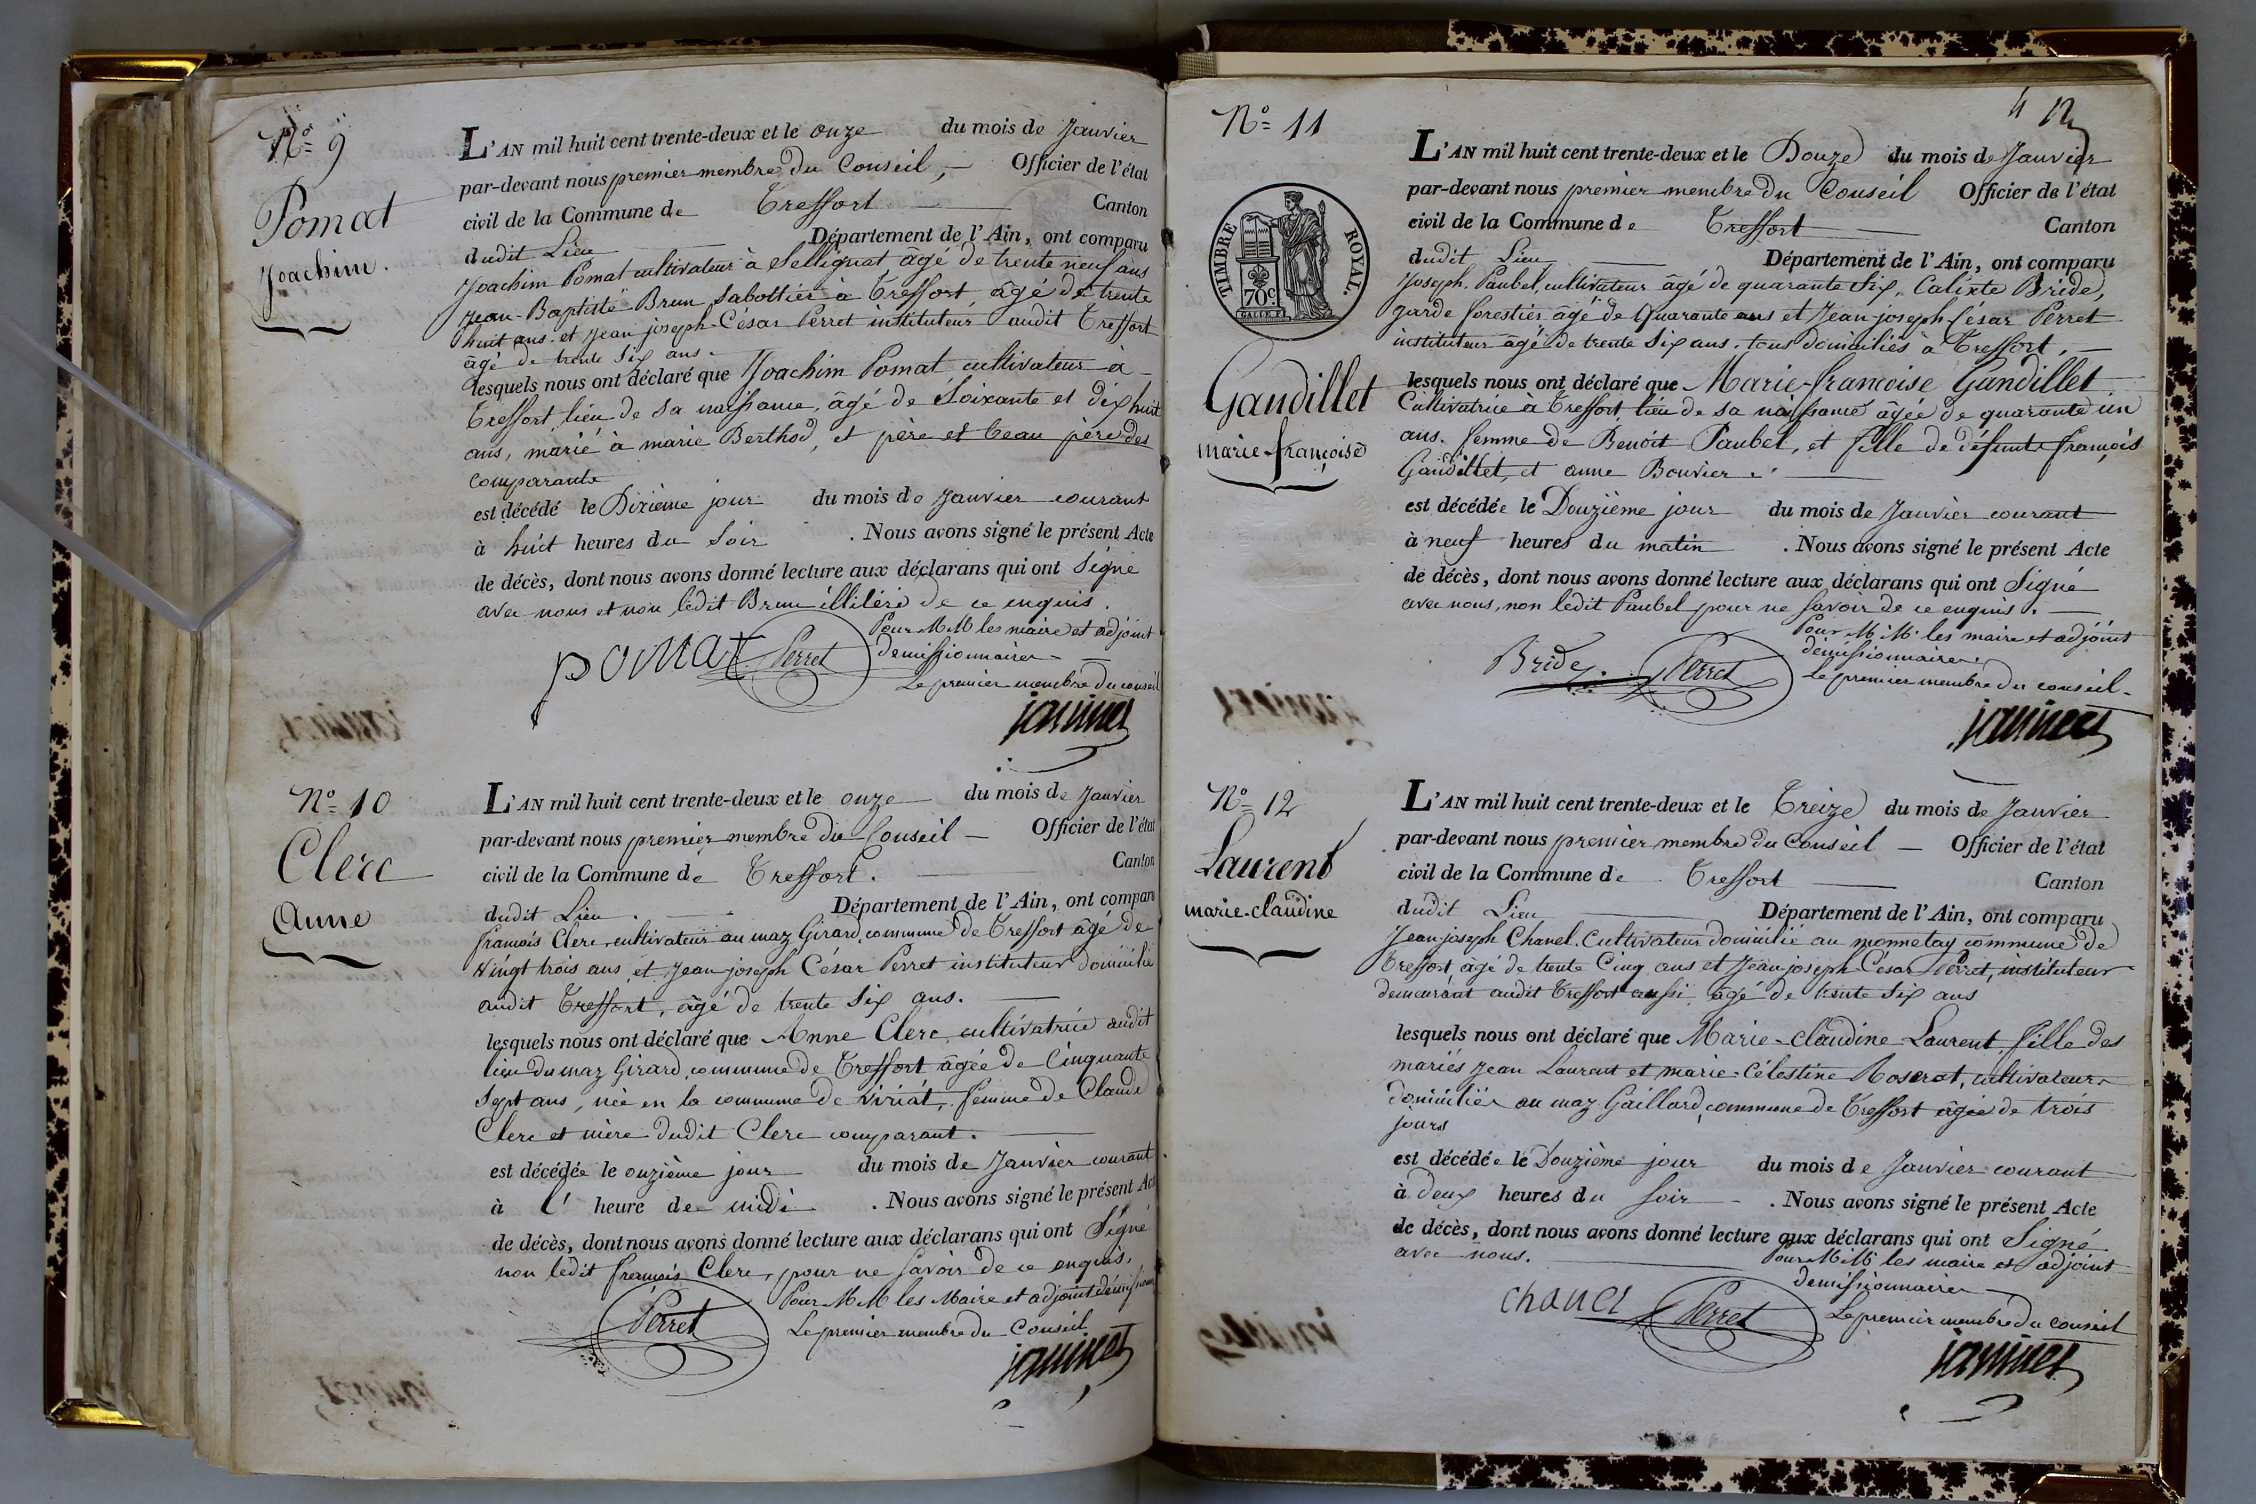 Nº 9
Pomat
Joachim.
L'AN mil huit cent trente-deux et le onze du mois de Janvier
par-devant nous premier membre du Conseil, Officier de l'état
civil de la Commune de Treffort Canton
dudit Lieu Département de l'Ain, ont comparu
Joachim Pomat cultivateur à Sellignat âgé de trente neuf ans
Jean-Baptiste Brun Sabottier à Treffort, âgé de trente
huit ans. et Jean joseph-César Perret instituteur audit Treffort
âgé de trente Six ans.
lesquels nous ont déclaré que Joachim Pomat cultivateur à
Treffort, lieu de sa naissance, âgé de Soixante et dix huit
ans, marié à marie Berthod, et père et beau père des
comparants
est décédé le Dixième jour du mois de Janvier courant
à huit heures du Soir . Nous avons signé le présent Acte
de décès, dont nous avons donné lecture aux déclarans qui ont Signé
avec nous et non ledit Brun illiteré de ce enquis.
Pour MM les maire et adjoint
demissionnaires
Le premier membre du conseil
pomat Perret
janinet
Nº 10
Clerc
Anne
L'AN mil huit cent trente-deux et le onze du mois de Janvier
par-devant nous premier membre du Conseil Officier de l'état
civil de la Commune de Treffort. Canton
dudit Lieu. Département de l'Ain, ont comparu
françois Clerc, cultivateur au maz Girard, commune de Treffort âgé de
Vingt trois ans, et Jean joseph César Perret instituteur domicilié
audit Treffort, âgé de trente Six ans.
lesquels nous ont déclaré que Anne Clerc, cultivatrice audit
lieu du maz Girard, commune de Treffort âgée de Cinquante
Sept ans, née en la commune de Viriat, femme de Claude
Clerc et mère dudit Clerc comparant.
est décédée le onzième jour du mois de Janvier courant
à l' heure de midi . Nous avons signé le présent Acte
de décès, dont nous avons donné lecture aux déclarans qui ont Signé
non ledit françois Clerc, pour ne savoir de ce enquis.
Pour MM les Maire et adjoint démission
Le premier membre du Conseil
Perret
janinet
Nº 11
TIMBRE ROYAL.
70 c.
Gaudillet
marie-françoise
L'AN mil huit cent trente-deux et le Douze du mois de Janvier
par-devant nous premier membre du Conseil Officier de l'état
civil de la Commune de Treffort Canton
dudit Lieu Département de l'Ain, ont comparu
Joseph Paubel, cultivateur âgé de quarante Six, Calixte Bride,
garde forestier âgé de Quarante ans et Jean joseph César Perret
instituteur âgé de trente Six ans. tous domiciliés à Treffort,
lesquels nous ont déclaré que Marie-françoise Gaudillet
Cultivatrice à Treffort, lieu de sa naissance âgée de quarante un
ans. femme de Benoit Paubel, et fille de défunts françois
Gaudillet, et anne Bouvier.
est décédée le Douzième jour du mois de Janvier courant
à neuf heures du matin . Nous avons signé le présent Acte
de décès, dont nous avons donné lecture aux déclarans qui ont Signé
avec nous, non ledit Paubel pour ne savoir de ce enquis.
Pour MM. les maire et adjoint
démissionnaires.
Le premier membre du conseil
Bride Perret
janinet
Nº 12
Laurent
marie-claudine
L'AN mil huit cent trente-deux et le Treize du mois de Janvier
par-devant nous premier membre du Conseil Officier de l'état
civil de la Commune de Treffort Canton
dudit Lieu Département de l'Ain, ont comparu
Jean-joseph Chanel. Cultivateur domicilié au monnetay commune de
Treffort, âgé de trente Cinq ans et Jean joseph-César Perret, instituteur
demeurant audit Treffort aussi âgé de trente Six ans
lesquels nous ont déclaré que Marie-claudine Laurent, fille des
mariés Jean Laurent et marie-célestine Roserat, cultivateurs
domiciliés au maz Gaillard, commune de Treffort âgée de trois
jours
est décédée le Douzième jour du mois de Janvier courant
à deux heures du soir . Nous avons signé le présent Acte
de décès, dont nous avons donné lecture aux déclarans qui ont Signé
avec nous.
Pour MM les maire et adjoint
demissionnaires
Le premier membre du conseil
chanel Perret
janinet